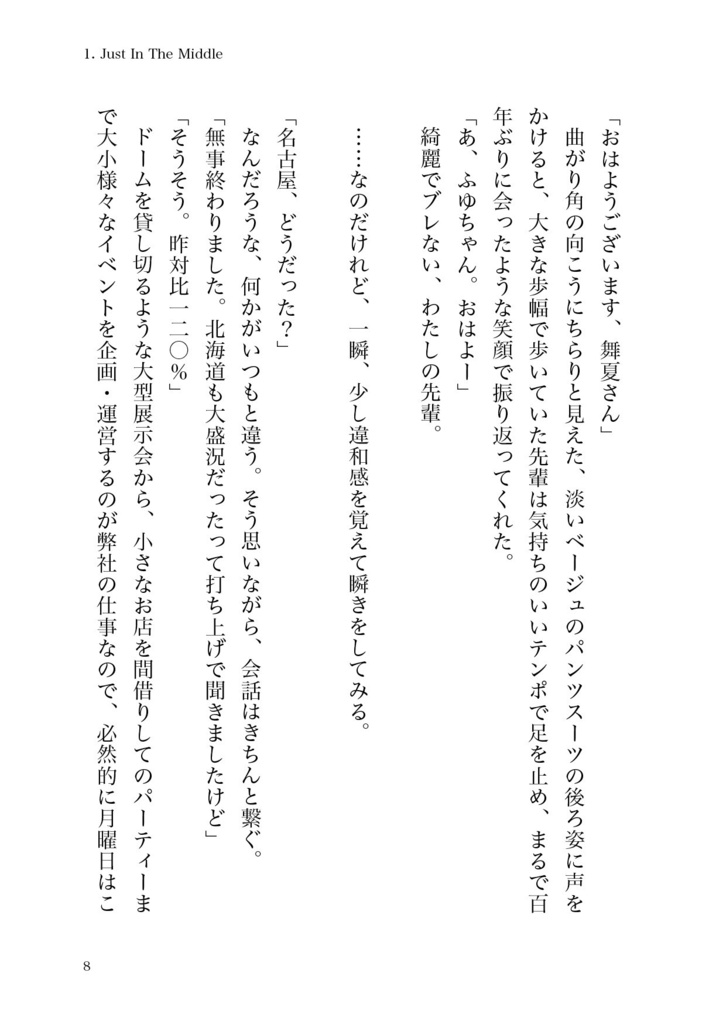 1. Just In The Middle
「おはようございます、舞夏さん」
曲がり角の向こうにちらりと見えた、淡いベージュのパンツスーツの後ろ姿に声を
かけると、大きな歩幅で歩いていた先輩は気持ちのいいテンポで足を止め、まるで百
年ぶりに会ったような笑顔で振り返ってくれた。
「あ、ふゆちゃん。おはよー」
綺麗でブレない、わたしの先輩。
……なのだけれど、一瞬、少し違和感を覚えて瞬きをしてみる。
「名古屋、どうだった？」
なんだろうな、何かがいつもと違う。そう思いながら、会話はきちんと繋ぐ。
「無事終わりました。北海道も大盛況だったって打ち上げで聞きましたけど」
「そうそう。昨対比一二〇％」
ドームを貸し切るような大型展示会から、小さなお店を間借りしてのパーティーま
で大小様々なイベントを企画・運営するのが弊社の仕事なので、必然的に月曜日はこ
8